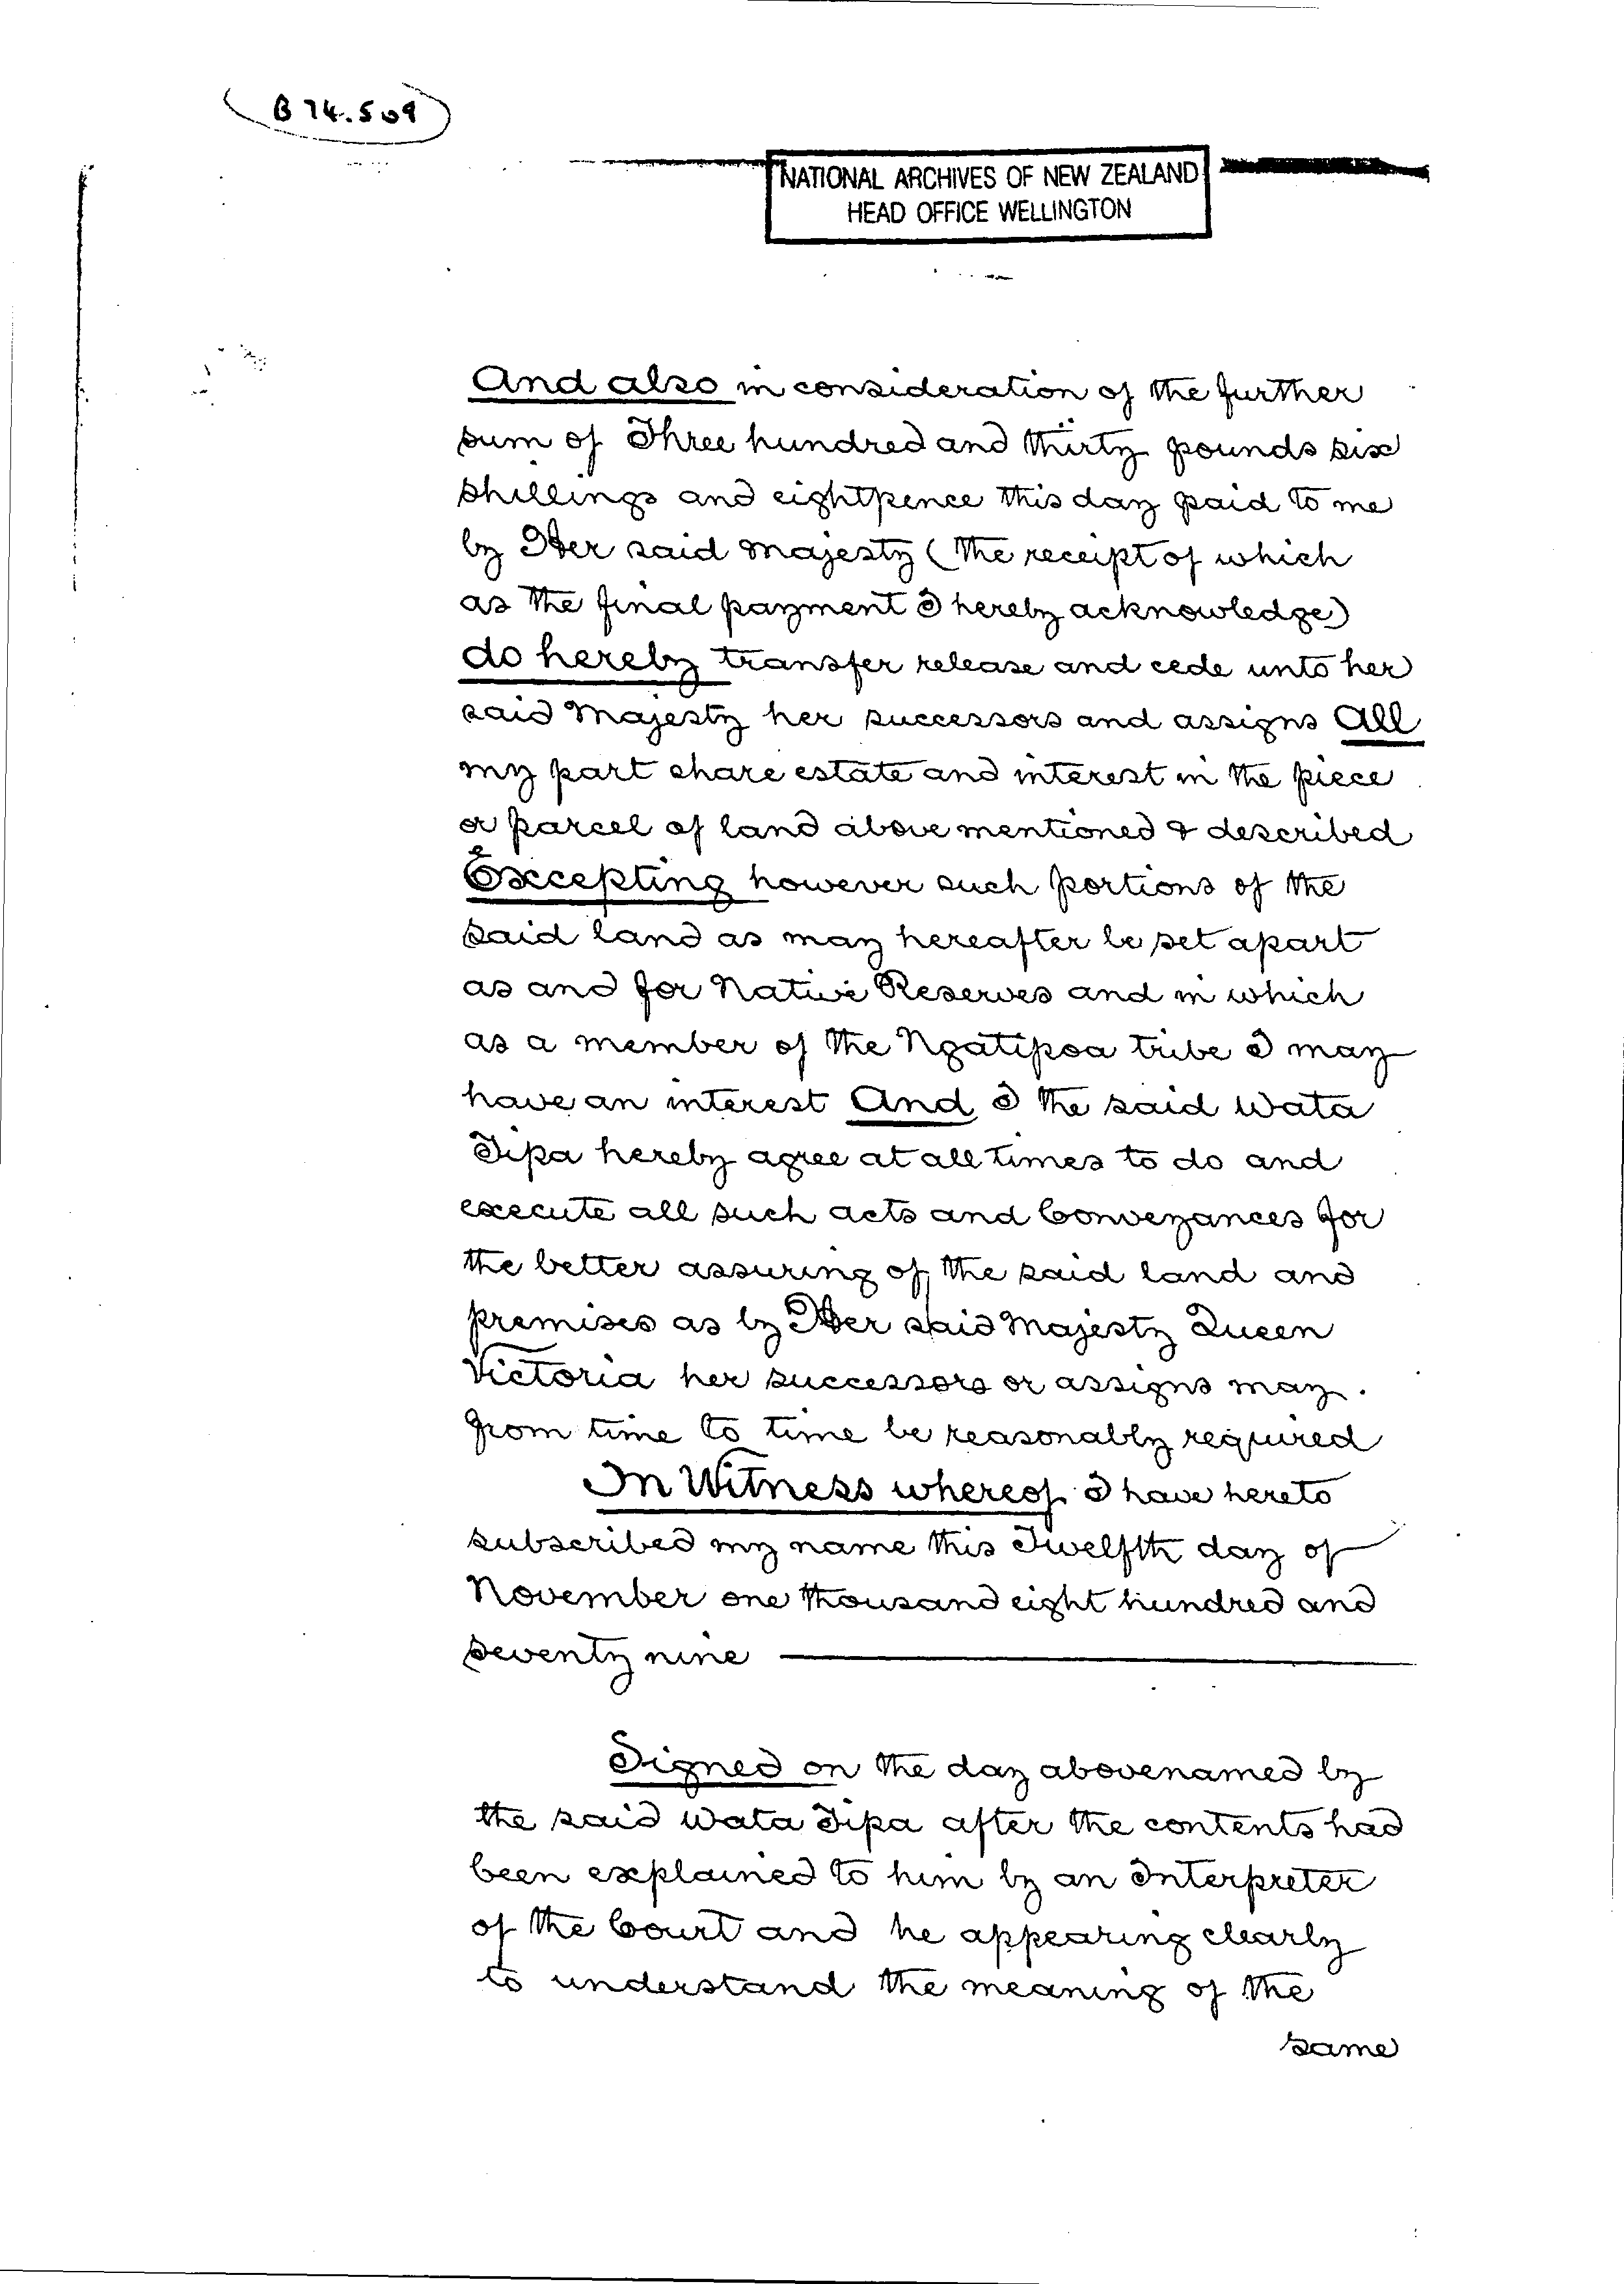 B 74.509
NATIONAL ARCHIVES OF NEW ZEALAND
HEAD OFFICE WELLINGTON
And also in consideration of the further
sum of Three hundred and thirty pounds six
shillings and eightpence this day paid to me
by Her said Majesty (the receipt of which
as the final payment I hereby acknowledge)
do hereby transfer release and cede unto her
said Majesty her successors and assigns All
my part share estate and interest in the piece
or parcel of land above mentioned & described
Excepting however such portions of the
said land as may hereafter be set apart
as and for Native Reserves and in which
as a member of the Ngatipoa tribe I may
have an interest And I the said Wata
Tipa hereby agree at all times to do and
execute all such acts and Conveyances for
the better assuring of the said land and
premises as by Her said Majesty Queen
Victoria her successors or assigns may.
from time to time be reasonably required
In Witness whereof I have hereto
subscribed my name this Twelfth day of
November one thousand eight hundred and
seventy nine
Signed on the day abovenamed by
the said Wata Tipa after the contents had
been explained to him by an Interpreter
of the Court and he appearing clearly
to understand the meaning of the
same